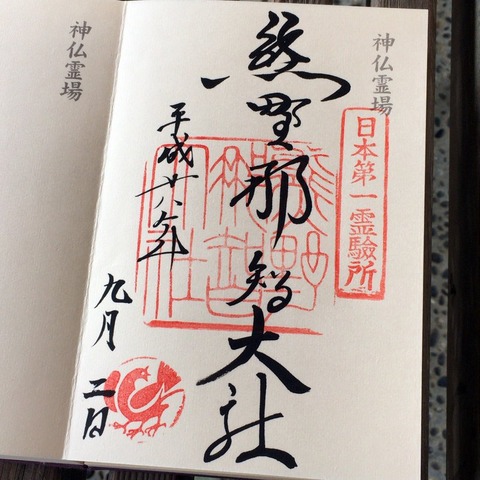 神仏霊場
日本第一霊驗所
熊野那智大社
平成廿八年
九月二日
神仏霊場